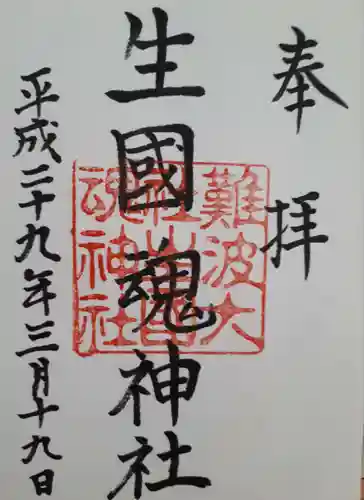 奉拝
生國魂神社
難波大
社生國
魂神社
平成二十九年三月十九日